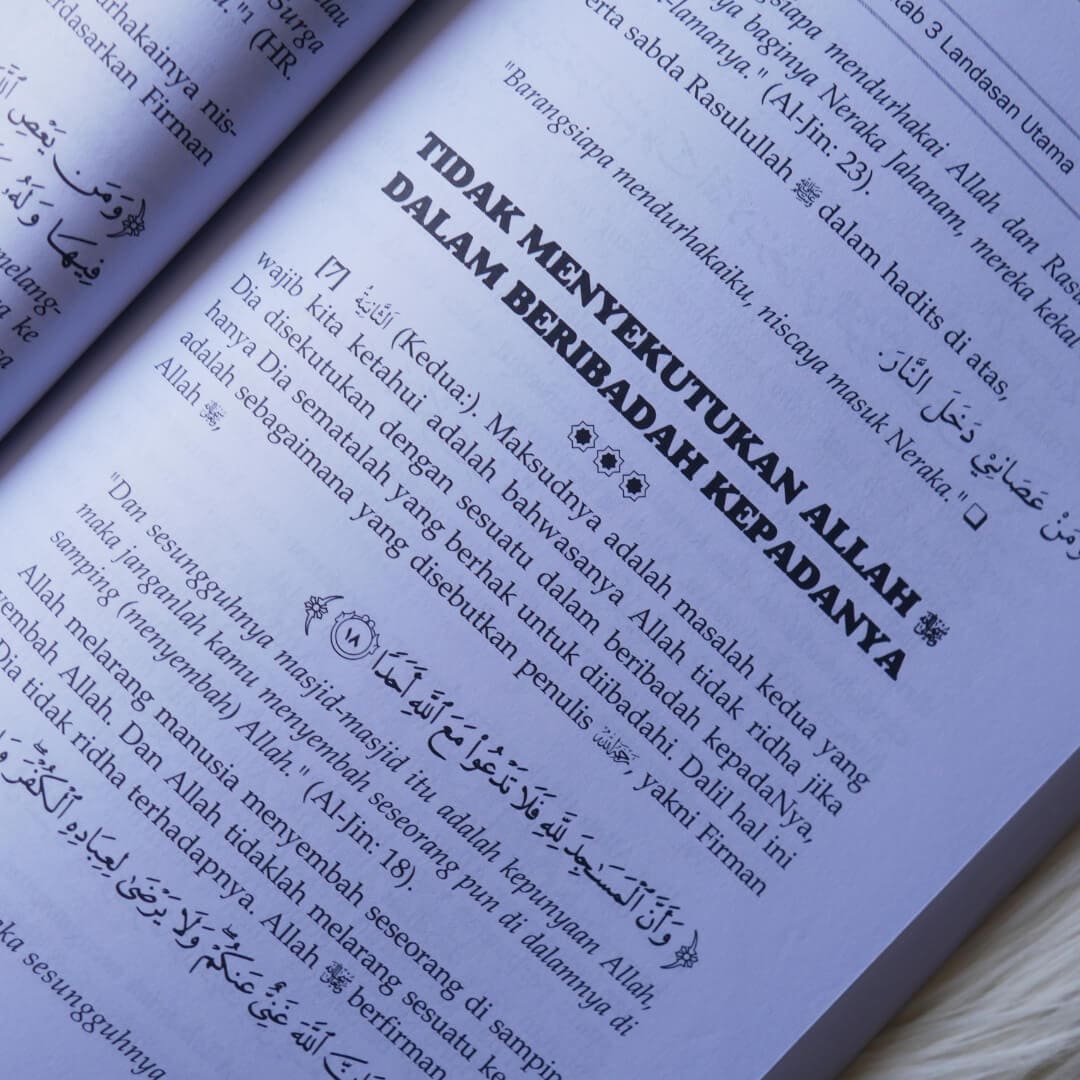 lau
Surga
urhakainya nis-
a,"1 (HR.
erdasarkan Firman
وَمَن يَعْصِ ٱللَّهَ
فِيهَا
melang-
a ke
itab 3 Landasan Utama
ngsiapa mendurhakai Allah dan Rasu
nya baginya Neraka Jahanam, mereka kekal
-lamanya." (Al-Jin: 23).
erta sabda Rasulullah ﷺ dalam hadits di atas,
وَمَنْ عَصَانِيْ دَخَلَ النَّارَ.
"Barangsiapa mendurhakaiku, niscaya masuk Neraka." □
TIDAK MENYEKUTUKAN ALLAH
DALAM BERIBADAH KEPADANYA
[7] اَلثَّانِيَةُ (Kedua:). Maksudnya adalah masalah kedua yang
wajib kita ketahui adalah bahwasanya Allah tidak ridha jika
Dia disekutukan dengan sesuatu dalam beribadah kepadaNya,
hanya Dia sematalah yang berhak untuk diibadahi. Dalil hal ini
adalah sebagaimana yang disebutkan penulis رَحِمَهُ اللهُ, yakni Firman
Allah
﴿وَأَنَّ ٱلْمَسَٰجِدَ لِلَّهِ فَلَا تَدْعُوا۟ مَعَ ٱللَّهِ أَحَدًا ١٨﴾
"Dan sesungguhnya masjid-masjid itu adalah kepunyaan Allah,
maka janganlah kamu menyembah seseorang pun di dalamnya di
samping (menyembah) Allah." (Al-Jin: 18).
Allah melarang manusia menyembah seseorang di sampin
yembah Allah. Dan Allah tidaklah melarang sesuatu ke
Dia tidak ridha terhadapnya. Allah berfirman
ٱللَّهَ غَنِىٌّ عَنكُمْ وَلَا يَرْضَىٰ لِعِبَادِهِ ٱلْكُفْرَ
aka sesungguhnya